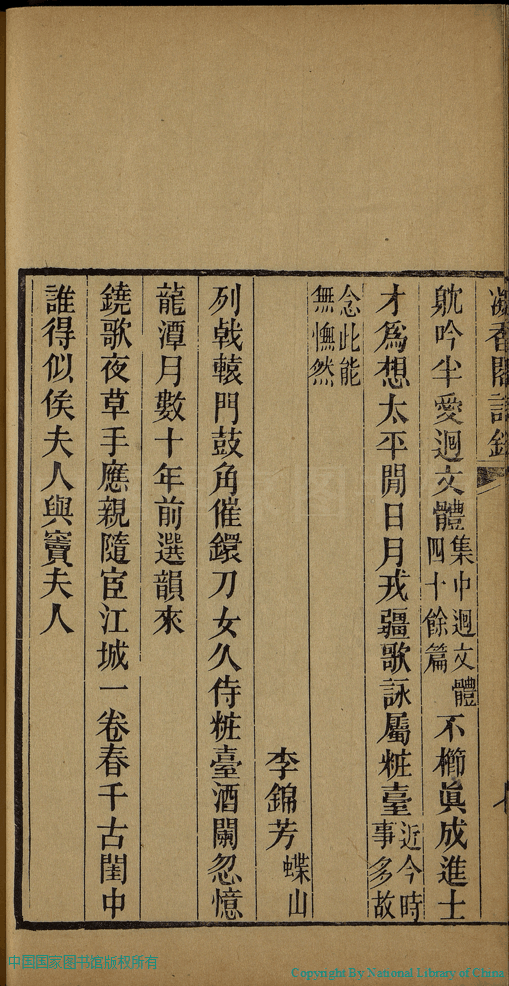 凝香閣詩鈔
躭吟半愛迴文體集中迴文體四十餘篇不櫛眞成進士
才爲想太平閒日月戎疆歌詠屬粧臺近今時事多故
念此能無憮然
李錦芳蝶山
列戟轅門鼓角催鐶刀女久侍粧臺酒闌忽憶
龍潭月數十年前選韻來
鐃歌夜草手應親隨宦江城一卷春千古閨中
誰得似侯夫人與竇夫人
中国国家图书馆版权所有
Copyright By National Library of China